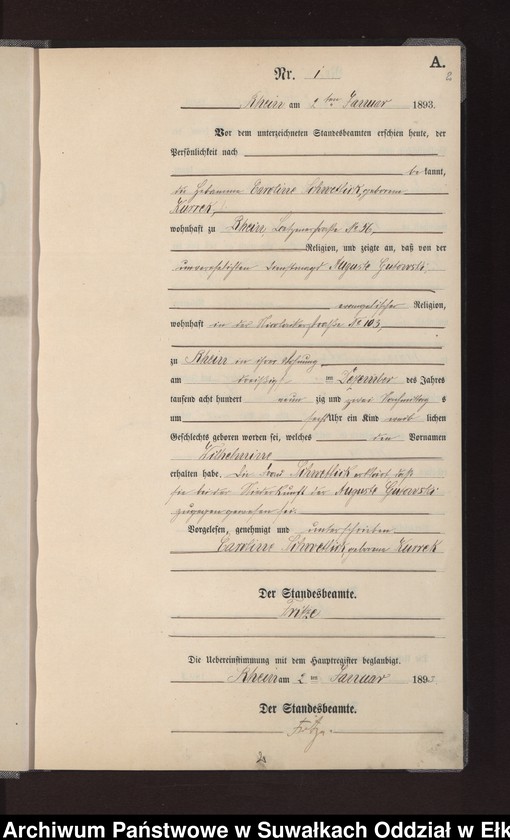 A.
2
Nr. 1
Rhein am 2ten Januar 1893.
Vor dem unterzeichneten Standesbeamten erschien heute, der
Persönlichkeit nach
bekannt,
die Hebamme Caroline geborene
Kurrek,
wohnhaft zu Rhein, No 36,
Religion, und zeigte an, daß von der
unverehelichten Dienstmagd Auguste Gutowski,
evangelischer Religion,
wohnhaft in der No 103,
zu Rhein in ihrer Wohnung
am dreißigsten Dezember des Jahres
tausend acht hundert neunzig und zwei Nachmittags
um sechs Uhr ein Kind weiblichen
Geschlechts geboren worden sei, welches den Vornamen
Wilhelmine
erhalten habe. Die Frau erklärt, daß
sie bei der Niederkunft der Auguste Gutowski
zugegen gewesen sei.
Vorgelesen, genehmigt und unterschrieben
Caroline geborene Kurrek
Der Standesbeamte.
Fritze
Die Uebereinstimmung mit dem Hauptregister beglaubigt.
Rhein am 2ten Januar 1893
Der Standesbeamte.
Fritze.
Archiwum Państwowe w Suwałkach Oddział w Ełk